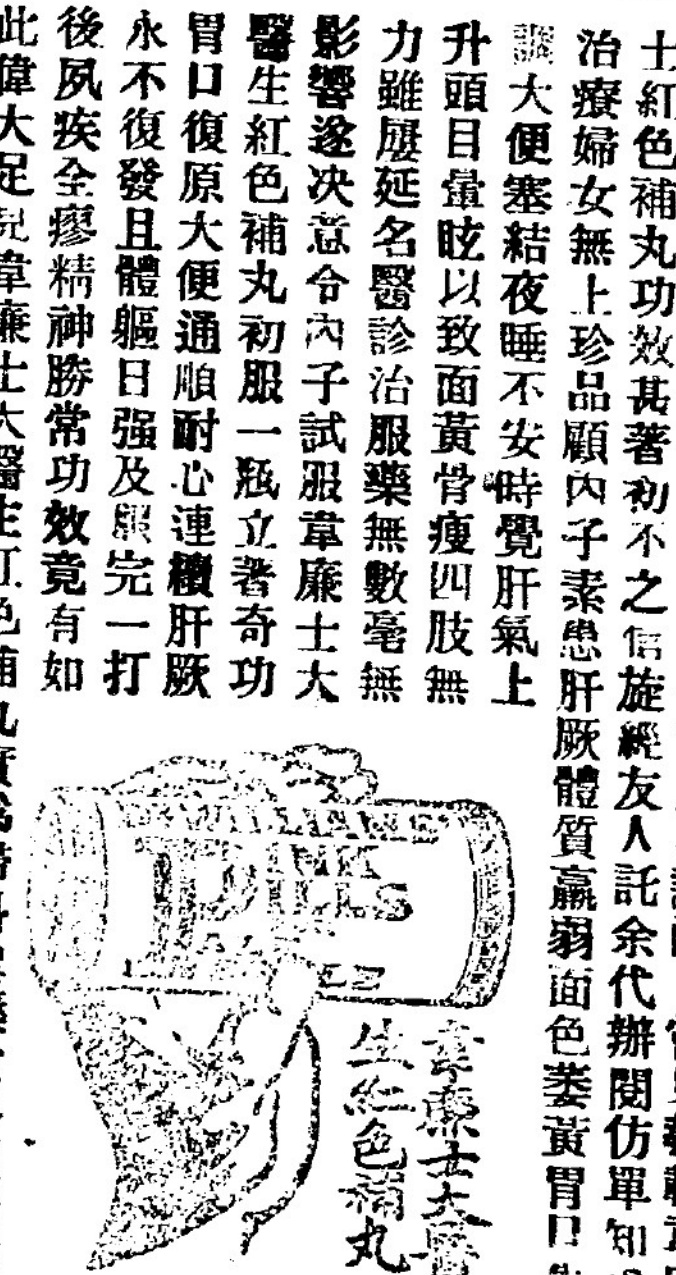 士紅色補丸功效甚著初不之信旋經友人託余代辦閱仿單知
治療婦女無上珍品顧內子素患肝厥體質羸弱面色萎黃胃口
調大便塞結夜睡不安時覺肝氣上
升頭目暈眩以致面黃骨瘦四肢無
力雖屢延名醫診治服藥無數毫無
影響遂决意令內子試服韋廉士大
醫生紅色補丸初服一瓶立著奇功
胃口復原大便通順耐心連續肝厥
永不復發且體軀日强及服完一打
後夙疾全瘳精神勝常功效竟有如
此偉大足見韋廉士大醫生紅色補丸實為
PINK
PILLS
韋廉士大醫
生紅色補丸